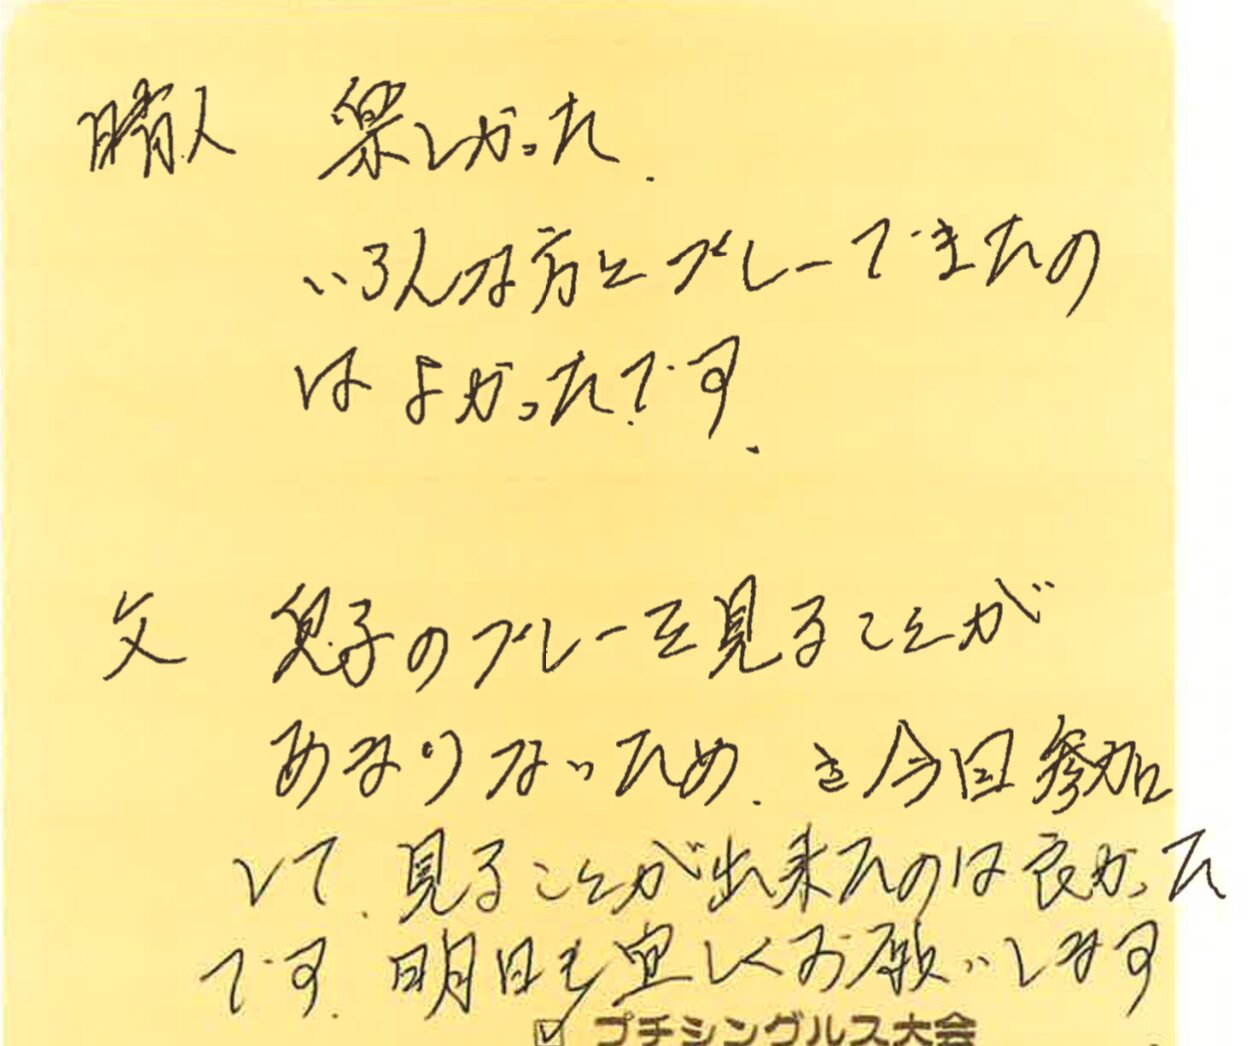 晴人 楽しかった.
いろんな方とプレーできたの
はよかったです.
父 息子のプレーを見ることが
あまりないため. 今回参加
して. 見ることが出来たのは良かった
です. 明日も宜しくお願いします
☑ プチシングルス大会